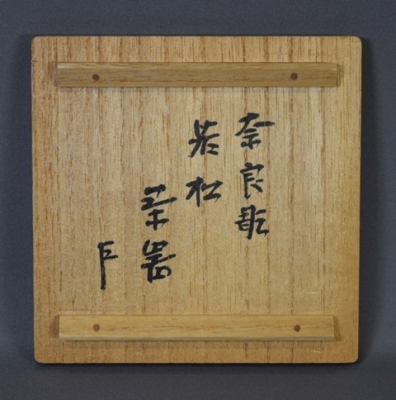 奈良彫
若松
茶器